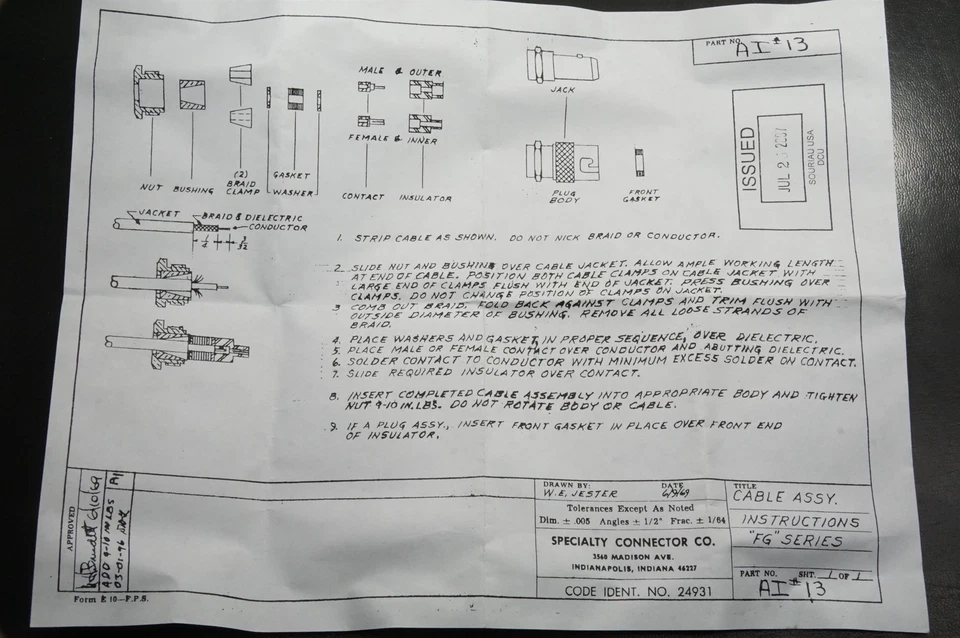 PART NO.
AI #13
MALE & OUTER
FEMALE & INNER
JACK
NUT
BUSHING
(2)
BRAID
CLAMP
GASKET
WASHER
CONTACT
INSULATOR
PLUG
BODY
FRONT
GASKET
ISSUED
JUL 2 2007
SOURIAU USA
DCU
JACKET
BRAID & DIELECTRIC
CONDUCTOR
1/4
3/32
1. STRIP CABLE AS SHOWN. DO NOT NICK BRAID OR CONDUCTOR.
2. SLIDE NUT AND BUSHING OVER CABLE JACKET. ALLOW AMPLE WORKING LENGTH
AT END OF CABLE. POSITION BOTH CABLE CLAMPS ON CABLE JACKET WITH
LARGE END OF CLAMPS FLUSH WITH END OF JACKET. PRESS BUSHING OVER
CLAMPS. DO NOT CHANGE POSITION OF CLAMPS ON JACKET.
3 COMB OUT BRAID. FOLD BACK AGAINST CLAMPS AND TRIM FLUSH WITH
OUTSIDE DIAMETER OF BUSHING. REMOVE ALL LOOSE STRANDS OF
BRAID.
4. PLACE WASHERS AND GASKET, IN PROPER SEQUENCE, OVER DIELECTRIC.
5. PLACE MALE OR FEMALE CONTACT OVER CONDUCTOR AND ABUTTING DIELECTRIC.
6. SOLDER CONTACT TO CONDUCTOR WITH MINIMUM EXCESS SOLDER ON CONTACT.
7. SLIDE REQUIRED INSULATOR OVER CONTACT.
8. INSERT COMPLETED CABLE ASSEMBLY INTO APPROPRIATE BODY AND TIGHTEN
NUT 9-10 IN.LBS. DO NOT ROTATE BODY OR CABLE.
9. IF A PLUG ASSY., INSERT FRONT GASKET IN PLACE OVER FRONT END
OF INSULATOR.
APPROVED
6/10/69
ADD 9-10 IN LBS
03-01-96
A1
Form E 10—F.P.S.
DRAWN BY:
W.E. JESTER
DATE
6/9/69
Tolerances Except As Noted
Dim. ± .005 Angles ± 1/2° Frac. ± 1/64
SPECIALTY CONNECTOR CO.
3560 MADISON AVE.
INDIANAPOLIS, INDIANA 46227
CODE IDENT. NO. 24931
TITLE
CABLE ASSY.
INSTRUCTIONS
"FG" SERIES
PART NO.
SHT. 1 OF 1
AI #13